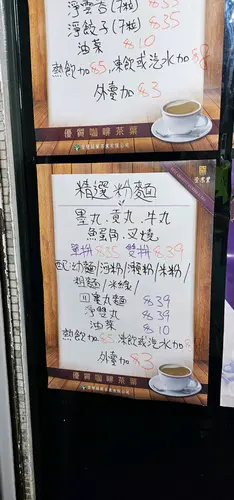 淨雲吞(7粒) $35
淨餃子(7粒) $35
油菜 $10
熱飲加$5,凍飲或汽水加$8
外賣加$3
優質咖啡茶葉
精選粉麵
墨丸.貢丸.牛丸
魚蛋角.叉燒
單拼$35 雙拼$39
配:幼麵/河粉/瀨粉/米粉/
粗麵/米線/
淨雙丸 $39
油菜 $10
熱飲加$5,凍飲或汽水加
外賣加$3
優質咖啡茶葉